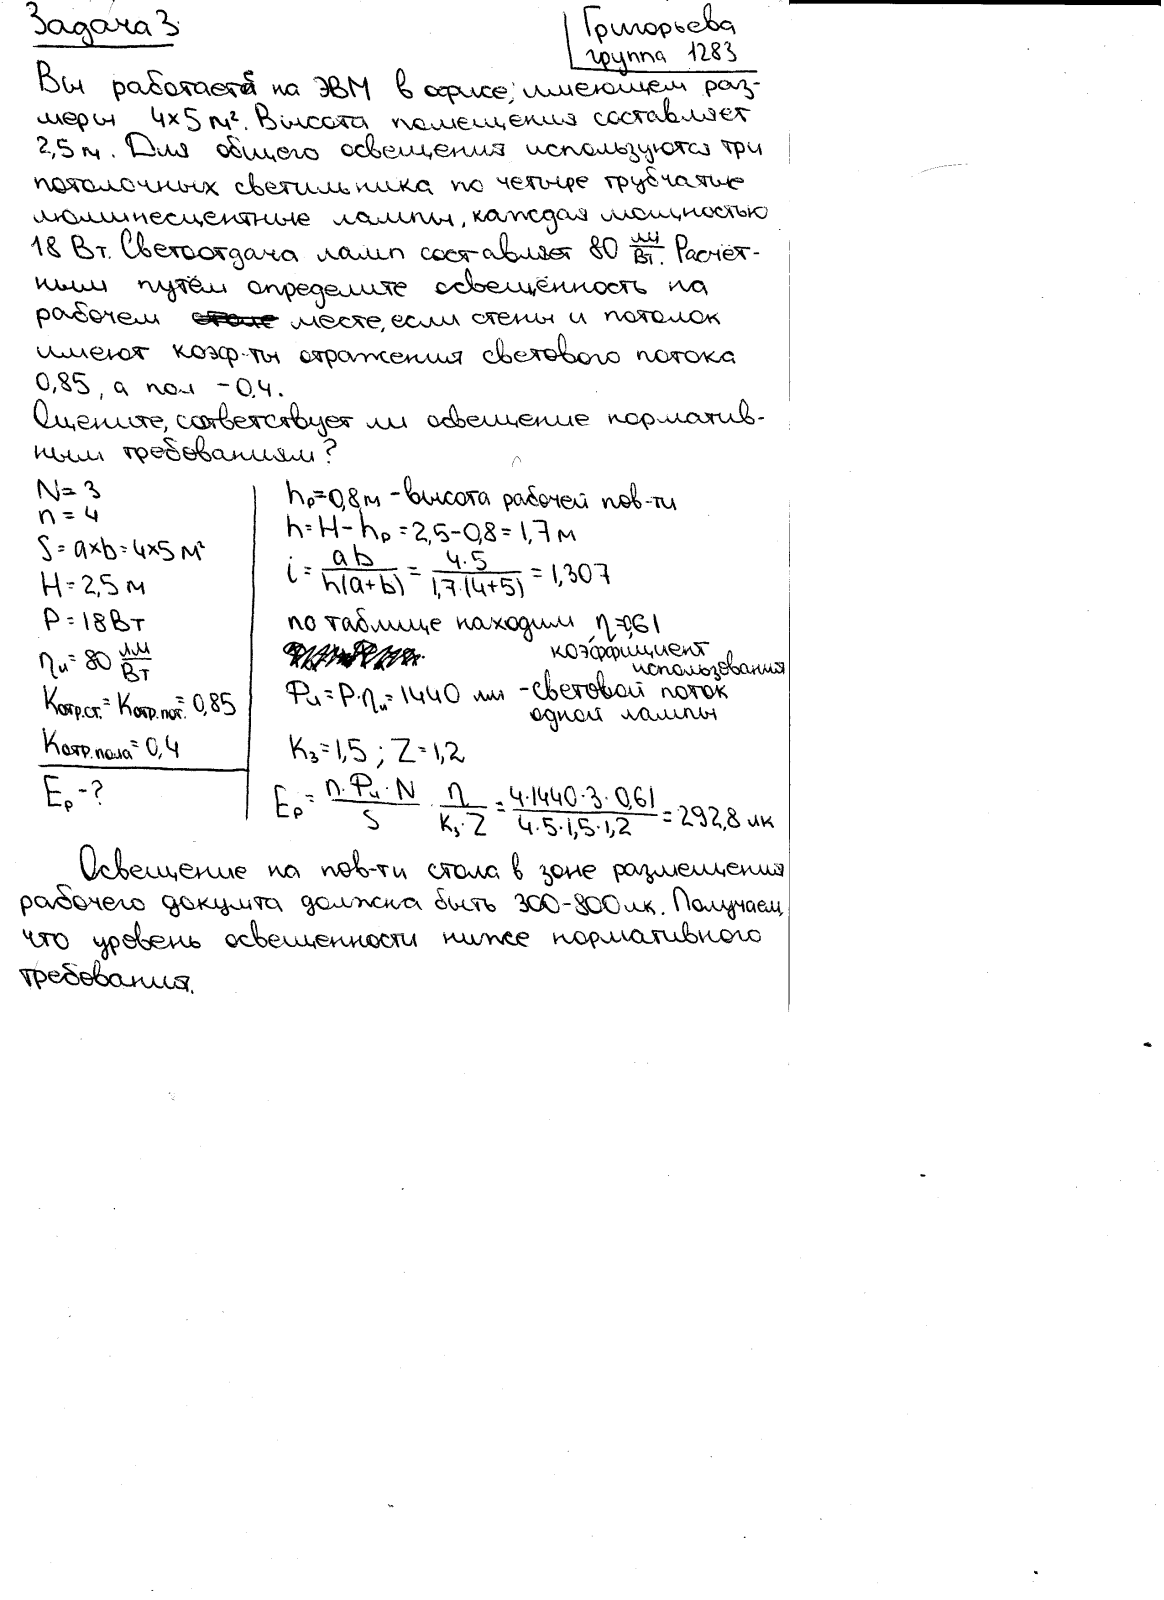 Задача 3.
Григорьева
группа 1283
Вы работаете на ЭВМ в офисе, имеющем раз-
меры 4×5 м². Высота помещения составляет
2,5 м. Для общего освещения используются три
потолочных светильника по четыре трубчатые
люминесцентные лампы, каждая мощностью
18 Вт. Светоотдача ламп составляет 80 лм/Вт. Расчёт-
ным путём определите освещённость на
рабочем месте, если стены и потолок
имеют коэф-ты отражения светового потока
0,85, а пол - 0,4.
Оцените, соответствует ли освещение норматив-
ным требованиям?
N = 3
n = 4
S = a×b = 4×5 м²
H = 2,5 м
P = 18 Вт
ηи = 80 лм/Вт
Котр.ст. = Котр.пот. = 0,85
Котр.пола = 0,4
Eр - ?
hр = 0,8 м - высота рабочей пов-ти
h = H - hр = 2,5 - 0,8 = 1,7 м
i = ab/h(a+b) = 4·5/1,7·(4+5) = 1,307
по таблице находим η = 0,61
коэффициент
использования
Фи = P·ηи = 1440 лм - световой поток
одной лампы
Kз = 1,5 ; Z = 1,2
Eр = n·Фи·N/S · η/Kз·Z = 4·1440·3·0,61/4·5·1,5·1,2 = 292,8 лк
Освещение на пов-ти стола в зоне размещения
рабочего докумта должна быть 300-800 лк. Получаем,
что уровень освещенности ниже нормативного
требования.